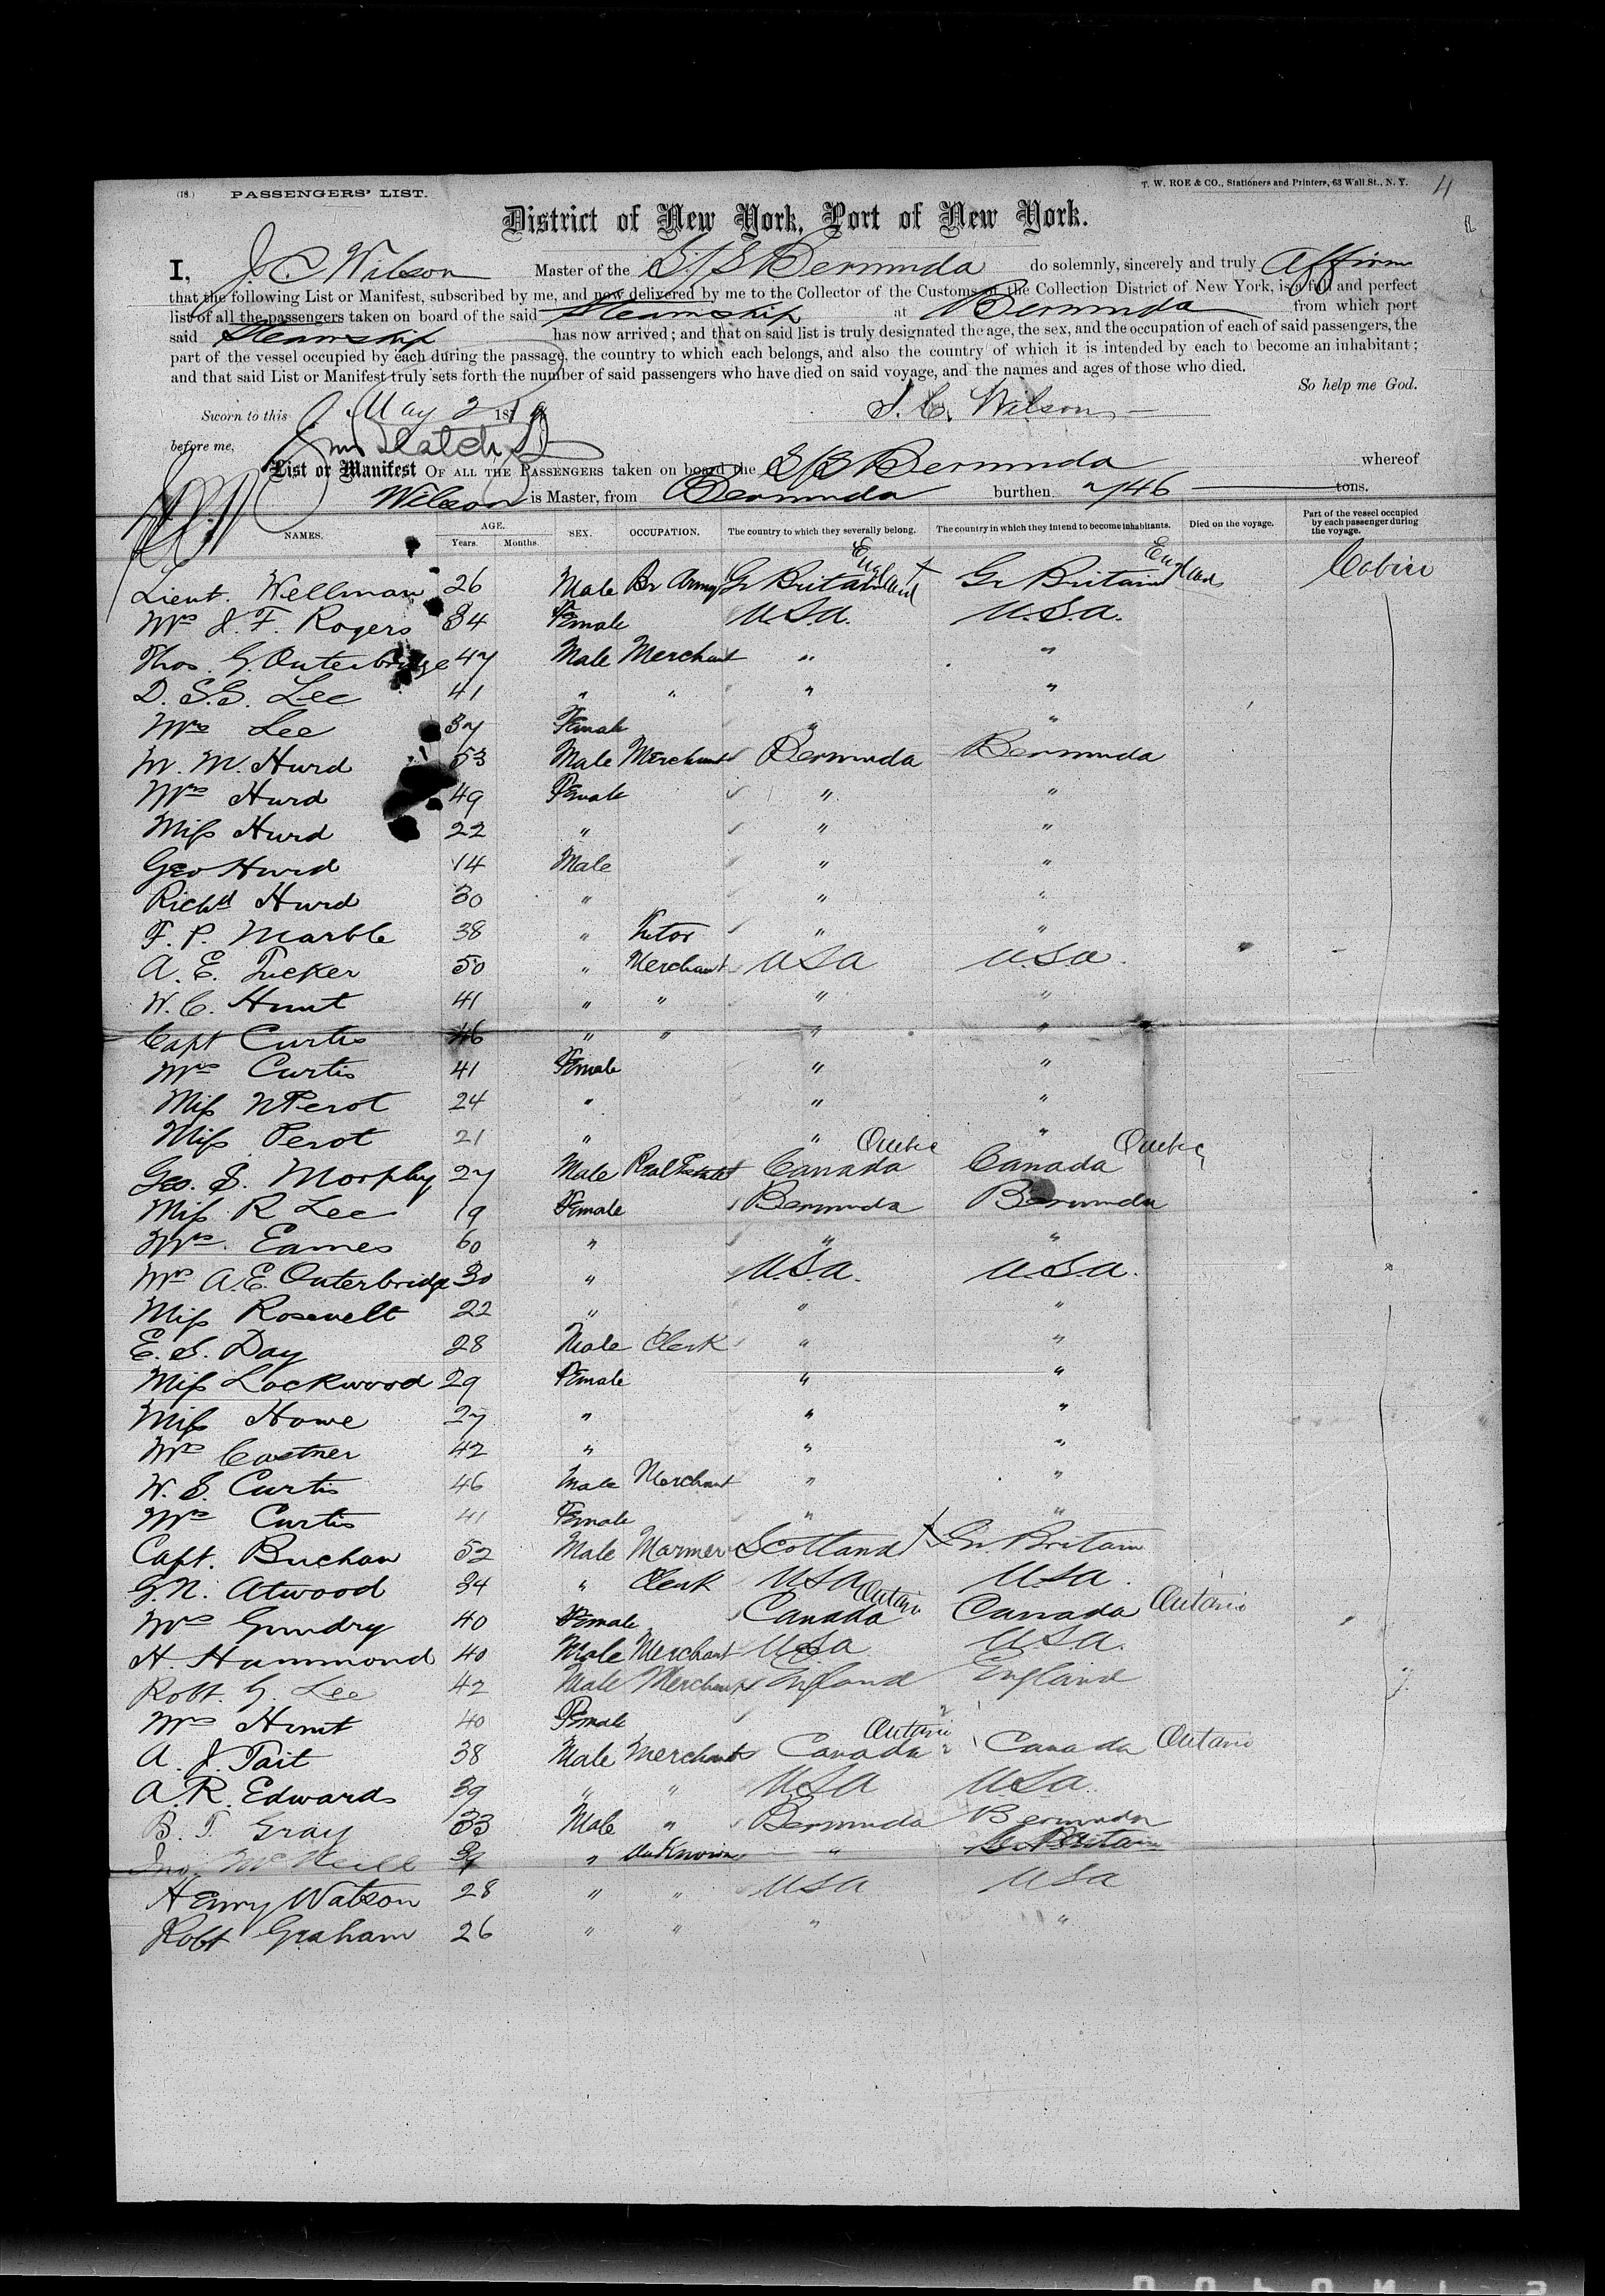 (18.) PASSENGERS' LIST. T. W. ROE & CO., Stationers and Printers, 63 Wall St., N. Y. 4
District of New York, Port of New York.
I, J. C. Wilson Master of the S/S Bermuda do solemnly, sincerely and truly Affirm
that the following List or Manifest, subscribed by me, and now delivered by me to the Collector of the Customs of the Collection District of New York, is a full and perfect
list of all the passengers taken on board of the said Steamship at Bermuda from which port
said Steamship has now arrived; and that on said list is truly designated the age, the sex, and the occupation of each of said passengers, the
part of the vessel occupied by each during the passage, the country to which each belongs, and also the country of which it is intended by each to become an inhabitant;
and that said List or Manifest truly sets forth the number of said passengers who have died on said voyage, and the names and ages of those who died.
So help me God.
Sworn to this May 2 18 J. C. Wilson
before me,
List or Manifest OF ALL THE PASSENGERS taken on board the S/S Bermuda whereof
Wilson is Master, from Bermuda burthen 746 tons.
NAMES. AGE. Years. Months. SEX. OCCUPATION. The country to which they severally belong. The country in which they intend to become inhabitants. Died on the voyage. Part of the vessel occupied by each passenger during the voyage.
Lieut. Wellman 26 Male Br Army Gr Britain England Gr Britain England Cabin
Mrs J. F. Rogers 34 Female U.S.A. U.S.A.
Thos. G. Outerbridge 47 Male Merchant " "
D. S.G. Lee 41 " " " "
Mrs Lee 37 Female " "
M. M. Hurd 53 Male Merchant Bermuda Bermuda
Mrs Hurd 49 Female " "
Miss Hurd 22 " " "
Geo Hurd 14 Male " "
Richd Hurd 30 " " "
F. P. Marble 38 " " "
A. E. Tucker 50 " Merchant USA U.S.A.
W. C. Hunt 41 " " " "
Capt Curtis 46 " " " "
Mrs Curtis 41 Female " "
Miss N Perot 24 " " "
Miss Perot 21 " " "
Geo. S. Morphy 27 Male Real Estate Canada Quebec Canada Quebec
Miss R Lee 19 Female Bermuda Bermuda
Mrs. Eames 60 " " "
Mrs A.E. Outerbridge 30 " U.S.A. U.S.A.
Miss Rosevelt 22 " " "
E. S. Day 28 Male Clerk " "
Miss Lockwood 29 Female " "
Miss Howe 27 " " "
Mrs Castner 42 " " "
W. S. Curtis 46 Male Merchant " "
Mrs Curtis 41 Female " "
Capt. Buchan 52 Male Mariner Scotland Gr. Britain
G. N. Atwood 34 " Clerk USA USA.
Mrs Gundry 40 Female Canada Ontario Canada Ontario
H. Hammond 40 Male Merchant USA USA.
Robt. G. Lee 42 Male Merchant England England
Mrs Hunt 40 Female
A. J. Tait 38 Male Merchant Canada Ontario Canada Ontario
A. R. Edwards 39 " " USA USA.
B. T. Gray 33 Male " Bermuda Bermuda
Jno. McNeill 39 " Unknown " Gt Britain
Henry Watson 28 " " USA USA
Robt Graham 26 " " " "